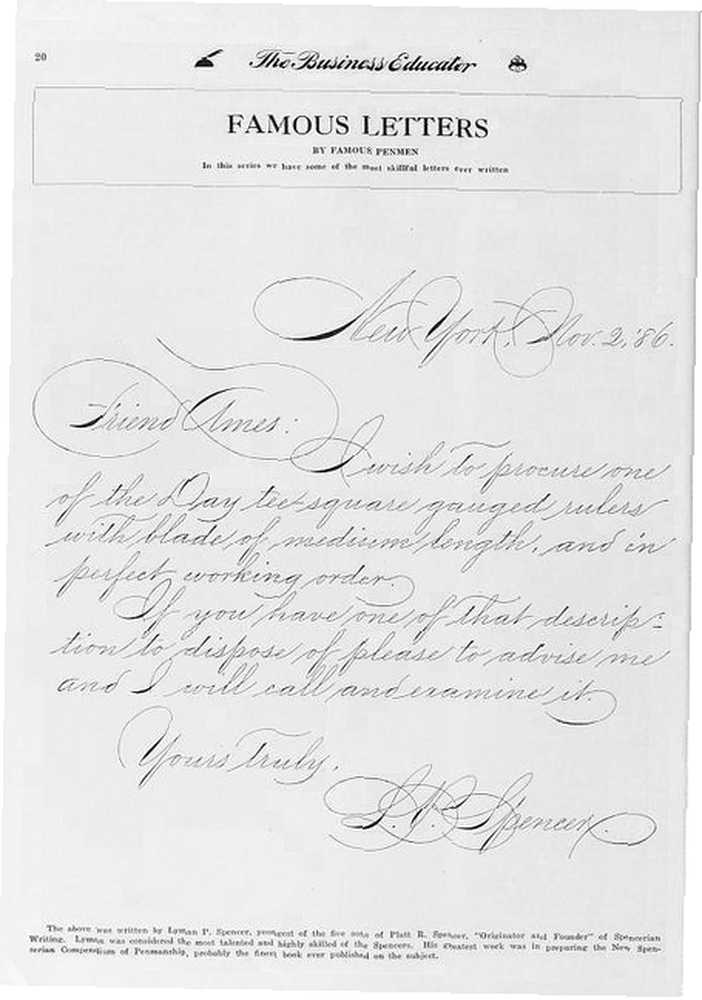 20
The Business Educator
FAMOUS LETTERS
BY FAMOUS PENMEN
In this series we have some of the most skillful letters ever written
New York, Nov. 2, '86.
Friend Ames:
I wish to procure one
of the Day tee-square gauged rulers
with blade of medium length, and in
perfect working order.
If you have one of that descrip-
tion to dispose of please to advise me
and I will call and examine it.
Yours Truly,
L. P. Spencer.
The above was written by Lyman P. Spencer, youngest of the five sons of Platt R. Spencer, "Originator and Founder" of Spencerian
Writing. Lyman was considered the most talented and highly skilled of the Spencers. His greatest work was in preparing the New Spen-
cerian Compendium of Penmanship, probably the finest book ever published on the subject.